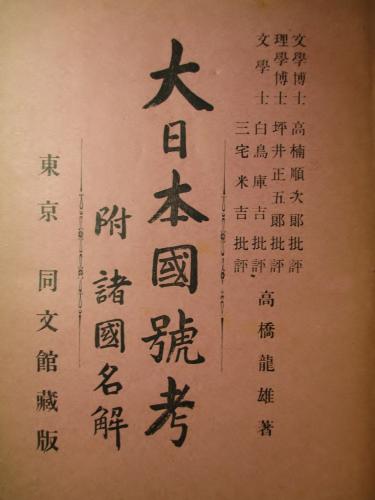 文學博士 高楠順次郎批評
理學博士 坪井正五郎批評
文學士 白鳥庫吉批評
三宅米吉批評
高橋龍雄著
大日本國號考
附 諸國名解
東京 同文館藏版